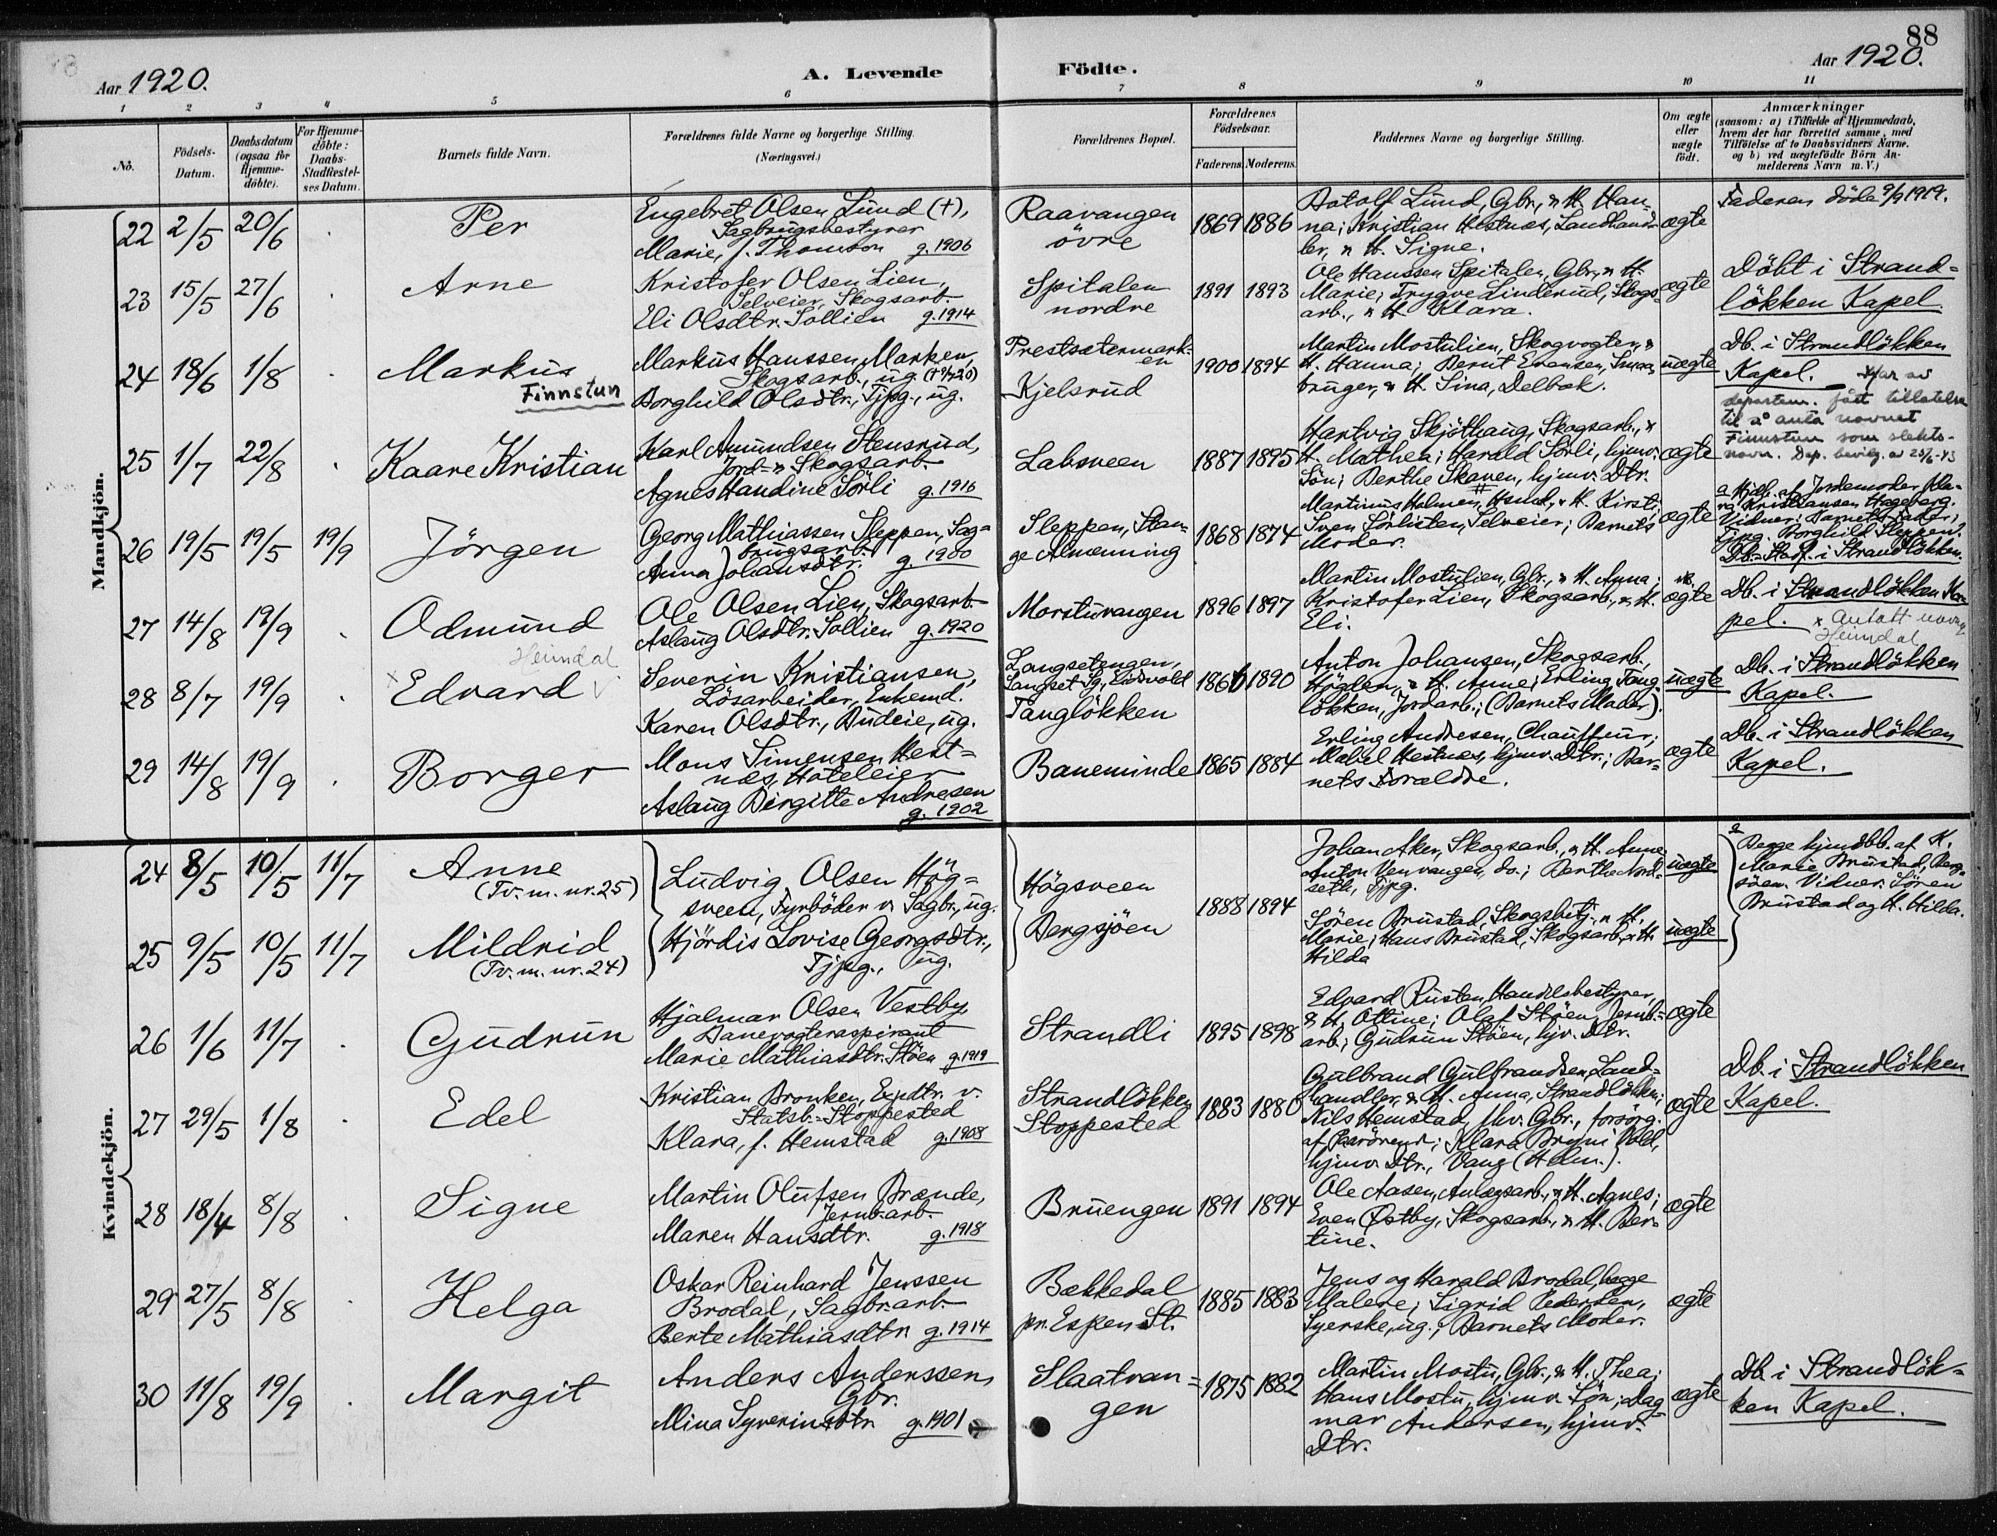 88
Aar 1920.
A. Levende
Födte.
Aar 1920.
1 2 3 4 5 6 7 8 9 10 11
No.
Födsels-
Datum.
Daabsdatum
(ogsaa for
Hjemme-
döbte).
For Hjemme-
döbte:
Daabs-
Stadfestel-
ses Datum.
Barnets fulde Navn.
Forældrenes fulde Navne og borgerlige Stilling.
(Næringsvei.)
Forældrenes Bopæl.
Forældrenes
Födselsaar.
Faderens. Moderens.
Faddernes Navne og borgerlige Stilling.
Om ægte
eller
uægte
födt.
Anmærkninger
(saasom: a) i Tilfælde af Hjemmedaab,
hvem der har forrettet samme, med
Tilföielse af to Daabsvidners Navne.
og b) ved uægtefödte Börn An-
melderens Navn m. V.)
Mandkjön.
22 2/5 20/6 Per
Engebret Olsen Lund (†),
Sagbrugsbestyrer
Marie, f. Thomson g. 1906
Raavangen
övre
1869 1886
Botolf Lund, Gbr., & H. Han-
na; Kristian Hestnæs, Landhand-
ler, & H. Signe.
ægte
Faderen döde 9/9 1919.
23 15/5 27/6 Arne
Kristofer Olsen Lien,
Selveier, Skogsarb.
Eli Olsdtr. Sollien g. 1914
Spitalen
nordre
1891 1893
Ole Hanssen Spitalen, Gbr., & H.
Marie; Trygve Linderud, Skogs-
arb., & H. Klara.
ægte
Döbt i Strand-
lökken Kapel
24 18/6 1/8 Markus
Finnstun
Markus Hanssen Marken,
Skogsarb., ug.
Borghild Olsdtr., Tjpg., ug.
Prestsætermark-
en
Kjelsrud
1900 1894
Martin Mostulien, Skogvogter, &
H. Hanna; Bernt Evensen, Smaa
bruger, & H. Sina, Delbæk.
uægte
Db. i Strandlökken
Kapel. Har av
departem. fått tillatelse
til å anta navnet
Finnstun som slekts-
navn. Dep. bevilg. av 23/6-43
25 1/7 22/8 Kaare Kristian
Karl Amundsen Stensrud,
Jord- & Skogsarb.
Agnes Haudine Sörli g. 1916
Labsveen
1887 1895
Hartvig Skjöthaug, Skogsarb., &
H. Mathea; Harald Sörli, hjmv.
Sön; Berthe Skaven, hjmv. Dtr.
ægte
26 19/5 19/5 19/9 Jörgen
Georg Mathiassen Sleppen, Sag-
brugsarb.
Anna Johansdtr. g. 1900
Sleppen, Stan-
ge Almenning
1868 1874
Martinus Holmen, Hsmd., & H. Kirsti;
Sven Sörlisten, Selveier; Barnets
Moder.
ægte
a Hjdb. af Jordemoder Kla-
ra Kristiansen Hageberg.
Vidner: Barnets Fader;
Tjpg. Borghild Sleppen.
Db.-Stadf. i Strandlökken.
27 14/8 19/9 Odmund
Ole Olsen Lien, Skogsarb.
Aslaug Olsdtr. Sollien g. 1920
Morstuvangen
1896 1897
Martin Mostulien, Gbr., & H. Anna;
Kristofer Lien, Skogsarb., & H.
Eli.
ægte
Db. i Strandlökken Ka-
pel. x Antatt navn
Heimdal
28 8/7 19/9 Edvard
Heimdal
Severin Kristiansen,
Lösarbeider, Enkemd.
Karen Olsdtr., Budeie, ug.
Langsetengen,
Langset Sg., Eidsvold
Tanglökken
1866 1890
Anton Johansen, Skogsarb.,
Högden, & H. Anne; Erling Tang-
lökken, Jordarb.; (Barnets Moder).
uægte
Db. i Strandlökken
Kapel.
29 14/8 19/9 Borger
Mons Simensen Hest-
næs, Hoteleier
Aslaug Birgitte Andresen
g. 1902
Baneminde
1865 1884
Erling Andresen, Chauffeur;
Mabel Hestnæs, hjmv. Dtr.; Bar-
nets Forældre.
ægte
Db. i Strandlökken
Kapel.
Kvindekjön.
24 8/5 10/5 11/7 Anne
(Tv. m. nr. 25)
Ludvig Olsen Hög-
sveen, Fyrböder v. Sagbr., ug.
Hjördis Lovise Georgsdtr.,
Tjpg., ug.
Högsveen
Bergsjöen
1888 1894
Johan Aker, Skogsarb., & H. Anne
Anton Venvangen, do.; Berthe Nord-
seth, Tjpg.
uægte
a Begge hjmdbb. af K.
Marie Brustad, Berg-
söen. Vidner: Sören
Brustad og H. Hilda.
25 9/5 10/5 11/7 Mildrid
(Tv. m. nr. 24)
Sören Brustad, Skogsbetj., & H.
Marie; Hans Brustad, Skogsarb., & H.
Hilda
uægte
26 1/6 11/7 Gudrun
Hjalmar Olsen Vestby,
Banevogteraspirant
Marie Mathiasdtr. Stöen g. 1919
Strandli
1895 1898
Edvard Rusten, Handelsbestyrer,
& H. Ottine; Olaf Stöen, Jernb.-
arb.; Gudrun Stöen, hjv. Dtr.
ægte
27 29/5 1/8 Edel
Kristian Bronken, Expdtr. v.
Statsb.-Stoppested
Klara, f. Hemstad g. 1908
Strandlökken
Stoppested
1883 1880
Gulbrand Gulbrandsen, Land-
handler, & H. Anna, Strandlökken;
Nils Hemstad, fhv. Gbr., forsörg.
af Paarörend; Klara Bryni Vold,
hjmv. Dtr., Vang (Hedm.).
ægte
Db. i Strandlökken
Kapel.
28 18/4 8/8 Signe
Martin Olufsen Brænde,
Jernb.arb.
Maren Hansdtr. g. 1918
Bruengen
1891 1894
Ole Aasen, Anlægsarb., & H. Agnes;
Even Østby, Skogsarb., & H. Ber-
tine.
ægte
29 27/5 8/8 Helga
Oskar Reinhard Jenssen
Brodal, Sagbr.arb.
Berte Mathiasdtr. g. 1914
Bækkedal
pr. Espen St.
1885 1883
Jens og Harald Brodal, begge
Malere; Sigrid Pedersen,
Syerske, ug.; Barnets Moder.
ægte
30 11/8 19/9 Margit
Anders Anderssen,
Gbr.
Mina Syverinsdtr. g. 1901
Slaatvan-
gen
1875 1882
Martin Mostu, Gbr., & H. Thea;
Hans Mostu, hjmv. Sön; Dag-
mar Andersen, hjmv.
Dtr.
ægte
Db. i Strandlök-
ken Kapel.